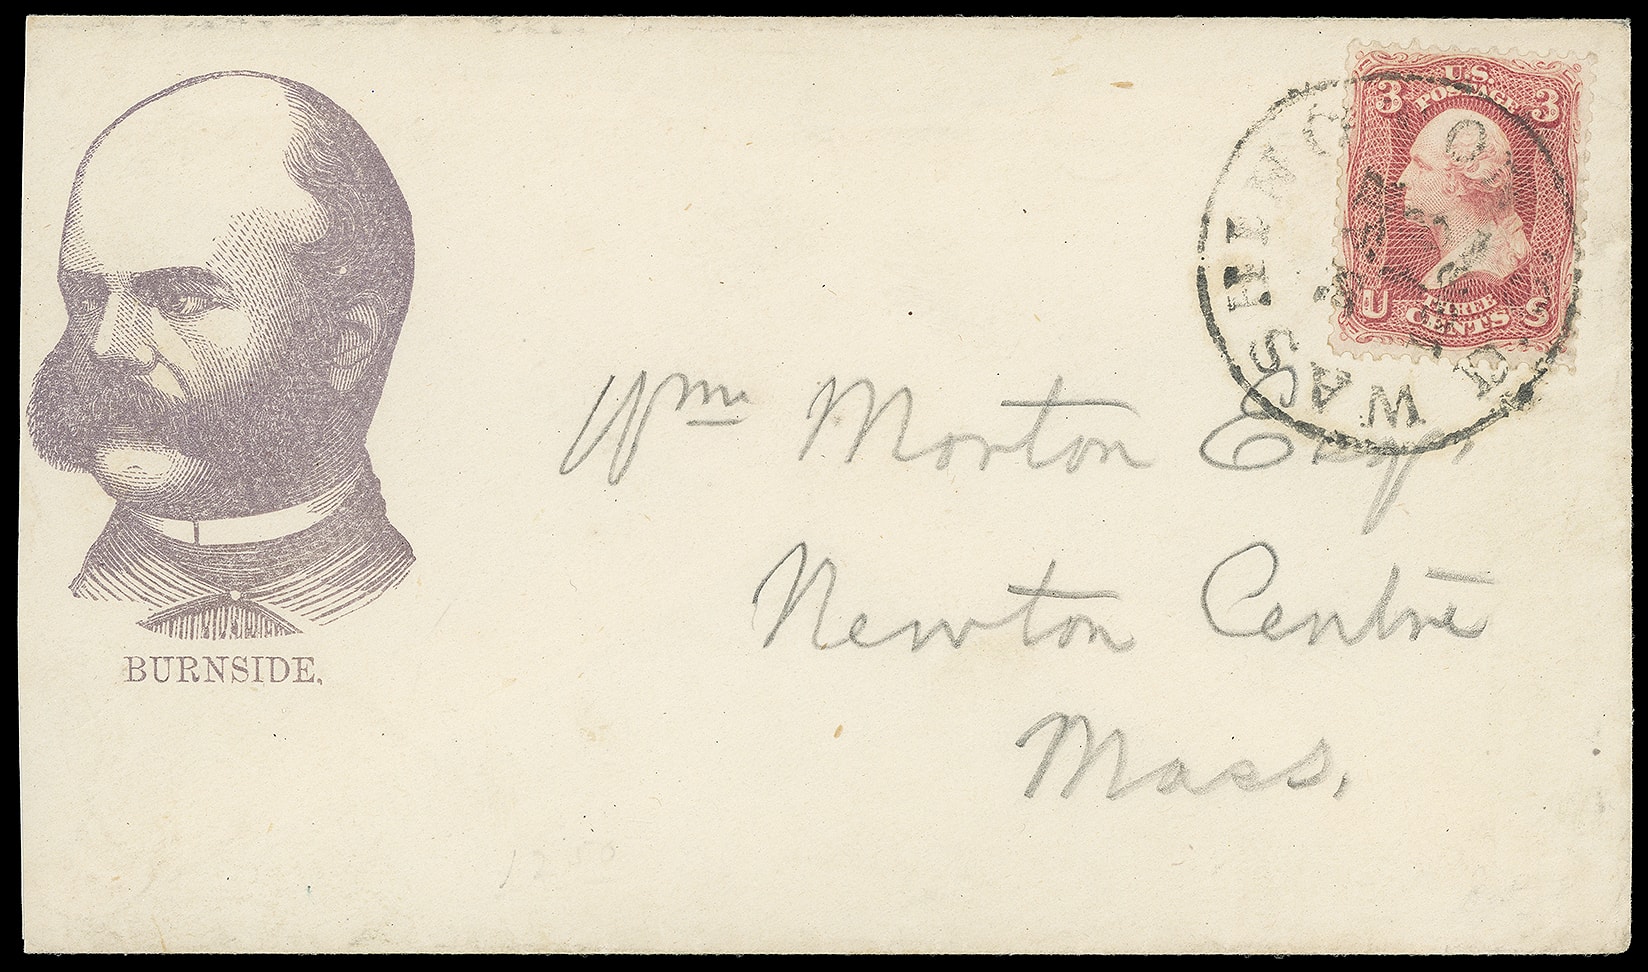 BURNSIDE.
U.S.
POSTAGE
3 3
U S
THREE
CENTS
WASHINGTON
Wm Morton Esqr.
Newton Centre
Mass.
1250